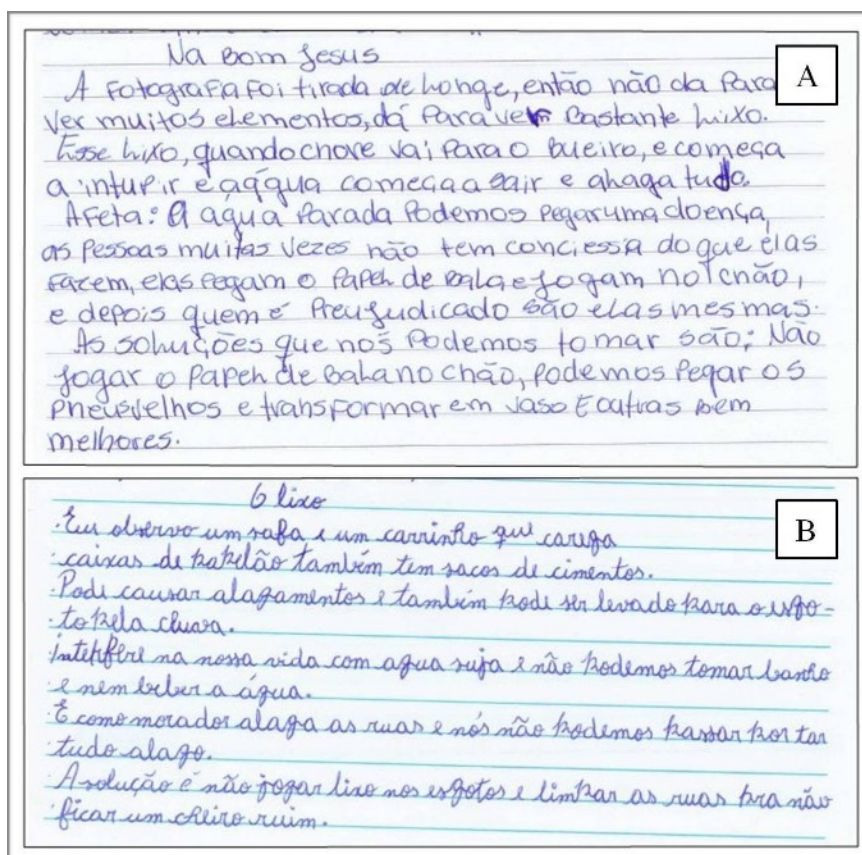 Na Bom Jesus
A
A Fotografia foi tirada de longe, então não da Para
ver muitos elementos, dá Para ver Bastante Lixo.
Esse Lixo, quando chove vai Para o Bueiro, e começa
a intupir e a água começa a sair e alaga tudo.
Afeta: A agua Parada Podemos Pegar uma doença,
as Pessoas muitas vezes não tem conciessia do que elas
Fazem, elas Pegam o Papel de Bala e Jogam no chão,
e depois quem é Preujudicado são elas mesmas.
As soluções que nos Podemos tomar são; Não
Jogar o Papel de Bala no chão, Podemos Pegar os
Pneus velhos e transformar em vaso E outras Bem
melhores.
O lixo
B
Eu observo um sofa e um carrinho que carega
caixas de papelão também tem sacos de cimentos.
Pode causar alagamentos e também pode ser levado para o esgo-
to pela chuva.
na nossa vida com agua suja e não podemos tomar banho
e nem beber a água.
E como morador alaga as ruas e nós não podemos passar por tar
tudo alago.
A solução é não jogar lixo nos esgotos e limpar as ruas pra não
ficar um cheiro ruim.